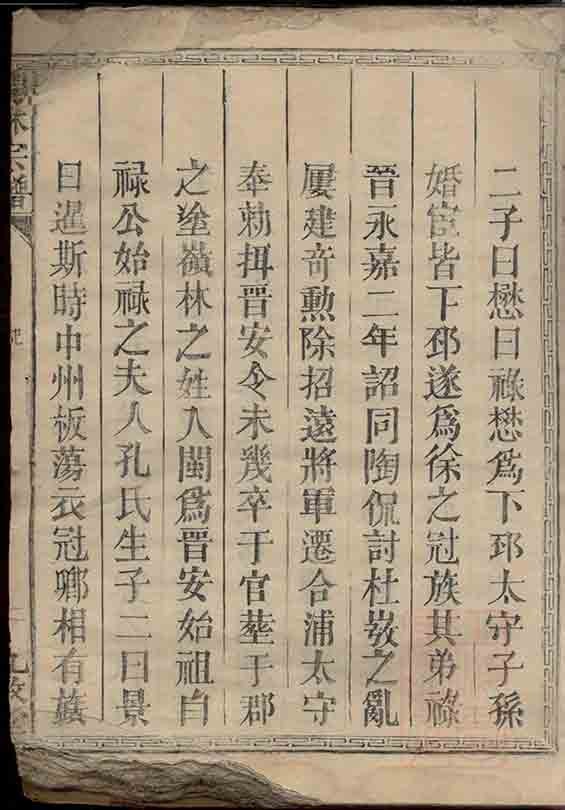 二子曰懋曰祿懋爲下邳太守子孫
婚宦皆下邳遂爲徐之冠族其弟祿
晉永嘉二年詔同陶侃討杜弢之亂
屢建奇勲除招遠將軍遷合浦太守
奉勑揖晉安令未幾卒于官塟于郡
之塗嶺林之姓入閩爲晉安始祖自
祿公始祿之夫人孔氏生子二曰景
曰暹斯時中州板蕩衣冠啣相有
林宗譜